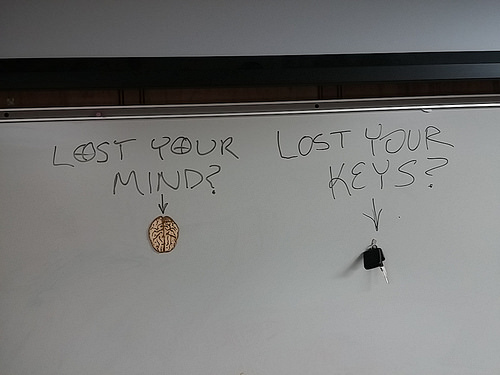 LOST YOUR
MIND?
LOST YOUR
KEYS?